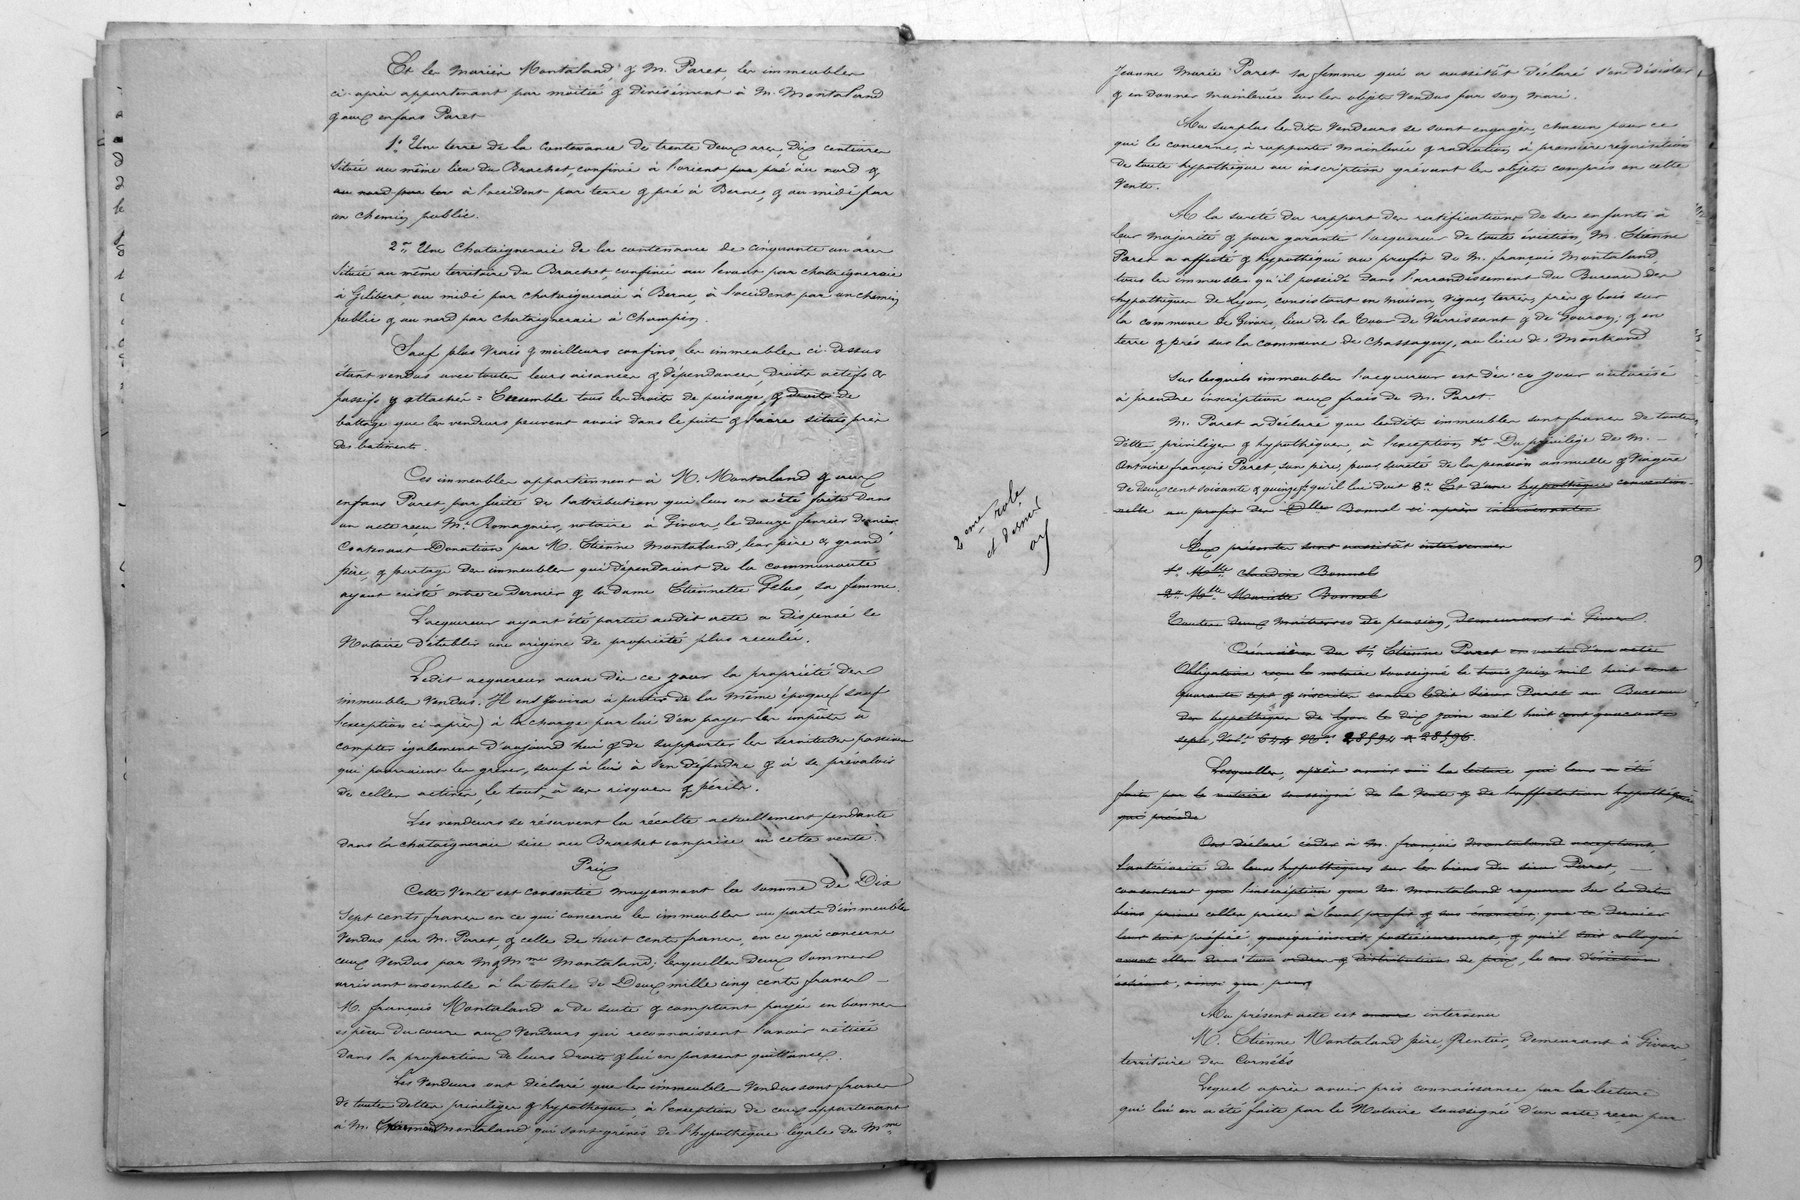 Et les mariés Montaland, & M. Paret, les immeubles
ci-après appartenant par moitié & divisément à M. Montaland
& aux enfans Paret
1°. Une terre de la contenance de trente deux ares, dix centiares
située au même lieu du Brachet, confinée à l'orient par pré au nord &
au nord par les à l'occident par terre & pré à Berne, & au midi par
un chemin public.
2°. Une Chataigneraie de la contenance de cinquante un ares
située au même territoire du Brachet, confinée au levant par chataigneraie
à Gilibert, au midi par chataigneraie à Berne, à l'occident par un chemin
public & au nord par chataigneraie à Champin.
Sauf plus vrais & meilleurs confins, les immeubles ci-dessus
étant vendus avec toutes leurs aisances & dépendances, droits actifs &
passifs y attachés = Ensemble tous les droits de puisage, & droits de
battage que les vendeurs peuvent avoir dans le puits & l'aire situés près
des batiments.
Ces immeubles appartiennent à M. Montaland & aux
enfans Paret, par suite de l'attribution qui leur en a été faite dans
un acte reçu Me. Romagnier, notaire à Givors, le douze février dernier,
Contenant Donation par M. Etienne Montaland, leur père & grand
père, & partage des immeubles qui dépendaient de la communauté
ayant existé entre ce dernier & la dame Etiennette Gelus, sa femme.
L'acquereur ayant été partie audit acte a dispensé le
Notaire d'établir une origine de propriété plus reculée.
Ledit acquereur aura dès ce jour la propriété des
immeubles vendus. Il en jouira à partir de la même époque (sauf
l'exception ci-après) à la charge par lui d'en payer les impôts à
compter également d'aujourd'hui & de supporter les servitudes passives
qui pourraient les grever, sauf à lui à s'en défendre & à se prévaloir
de celles actives, le tout à ses risques & périls.
Les vendeurs se réservent la récolte actuellement pendante
dans la chataigneraie sise au Brachet comprise en cette vente.
Prix
Cette vente est consentie moyennant la somme de Dix
sept cents francs en ce qui concerne les immeubles ou parts d'immeubles
vendus par M. Paret, & celle de huit cents francs, en ce qui concerne
ceux vendus par M & Mme Montaland; lesquelles deux sommes
arrivent ensemble à la totale de Deux mille cinq cents francs —
M. françois Montaland a de suite & comptant payée en bonnes
espèces du cours aux vendeurs qui reconnaissent l'avoir retirée
dans la proportion de leurs droits & lui en passent quittance.
Les vendeurs ont déclaré que les immeubles vendus sont francs
de toutes dettes privilèges & hypothèques, à l'exception de ceux appartenant
à M. Montaland qui sont grévés de l'hypothèque légale de Mme
2eme role
et dernier
Jeanne Marie Paret sa femme qui a aussitôt déclaré s'en désister
& en donner mainlevée sur les objets vendus par son mari.
Au surplus lesdits vendeurs se sont engagés, chacun pour ce
qui le concerne, à rapporter mainlevée & radiation, à première requisition
de toute hypothèque ou inscription grévant les objets compris en cette
vente.
A la sureté du rapport des ratifications de ses enfants à
leur majorité & pour garantir l'acquereur de toute éviction, M. Etienne
Paret a affecté & hypothéqué au profit de M. françois Montaland,
tous les immeubles qu'il possède dans l'arrondissement du Bureau des
hypothèques de Lyon, consistant en maison, vignes, terres, prés & bois sur
la commune de Givors, lieu de la Tour de Varissant & de Gouron; & en
terre & prés sur la commune de Chassagny, au lieu de Montrond
Sur lesquels immeubles l'acquereur est dès ce jour autorisé
à prendre inscription aux frais de M. Paret.
M. Paret a déclaré que lesdits immeubles sont francs de toutes
dettes, privilèges & hypothèques, à l'exception 1°. Du privilège de M. —
Antoine françois Paret, son père, pour sureté de la pension annuelle & viagère
de deux cent soixante & quinze fs qu'il lui doit 2°. Et d'une hypothèque convention-
nelle au profit des Dlles Bonnel ci après intervenantes
Aux présentes sont aussitôt intervenues
1°. Melle Claudine Bonnel
2°. Melle Mariette Bonnel
Toutes deux maitresses de pension, demeurant à Givors.
Créancières du Sr. Etienne Paret en vertu d'un acte
Obligatoire reçu le notaire soussigné le trois Juin mil huit cent
quarante sept & inscrite contre ledit sieur Paret au Bureau
des hypothèques de Lyon le dix juin mil huit cent quarante
sept, Vol.
Lesquelles, après avoir ouï la lecture qui leur a été
faite par le notaire soussigné de la vente & de l'affectation hypothécaire
qui précède
Ont déclaré céder à M. françois Montaland acceptant,
l'antériorité de leurs hypothèques sur les biens du sieur Paret, —
consentant que l'inscription que M. Montaland requerra sur lesdits
biens prime celles prises à leur profit & sus énoncées; que ce dernier
leur soit préféré, quoiqu'inscrit postérieurement, & qu'il soit colloqué
avant elles dans tous ordres & distributions de prix, le cas d'éviction
échéant, ainsi que pour
Au présent acte est encore intervenu
M. Etienne Montaland père, Rentier, demeurant à Givors,
territoire des Cornets
Lequel après avoir pris connaissance par la lecture
qui lui en a été faite par le Notaire soussigné d'un acte reçu par